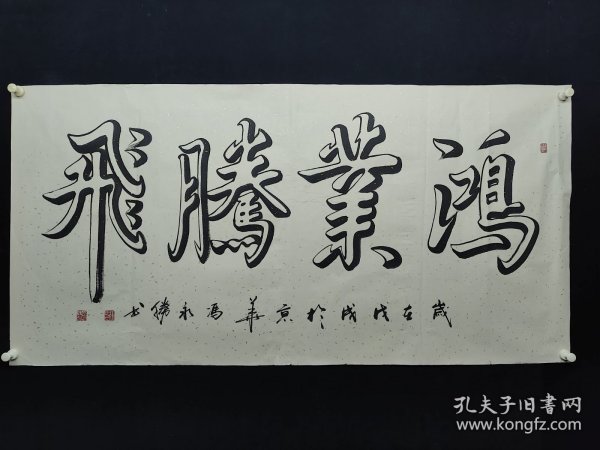 鴻業騰飛
歲在戊戌於京華馮永勝书
孔夫子旧書网
www.kongfz.com